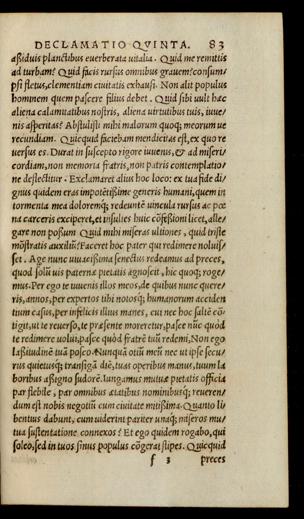 DECLAMATIO QVINTA. 83
aßiduis planctibus euerberata uitalia. Quid me remittis
ad turbam? Quid facis rursus omnibus grauem? consum/
psi fletus, clementiam ciuitatis exhausi. Non alit populus
hominem quem pascere filius debet. Quid sibi uult hæc
aliena calamitatibus nostris, aliena uirtutibus tuis, iuue/
nis asperitas? Abstulisti mihi malorum quoq; meorum ue
recundiam. Quicquid faciebam mendicitas est, ex quo re
uersus es. Durat in suscepto rigore iuuenis, & ad miseri/
cordiam, non memoria fratris, non patris contemplatio/
ne deflectitur. Exclamaret alius hoc loco: ex tua fide di/
gnus quidem eras impotētißime generis humani, quem in
tormenta mea doloremq; redeuntē uincula rursus ac pœ
na carceris exciperet, et insultes huic cōfeßioni licet, alle/
gare non poßum Quid mihi miseras ultiones, quid triste
mōstratis auxiliū? Faceret hoc pater qui redimere noluis/
set. Age nunc uiuacißima senectus redeamus ad preces,
quod solū uis paternæ pietatis agnoscit, hic quoq; roge/
mus. Per ego te iuuenis illos meos, de quibus nunc quere/
ris, annos, per expertos tibi notosq; humanorum acciden
tium casus, per infelicis illius manes, cui nec hoc saltē cō/
tigit, ut te reuerso, te præsente moreretur, pasce nūc quòd
te redimere uolui, pasce quòd fratrē tuū redemi, Non ego
laßitudinē tuā posco. Nunquā otiū meū nec ut ipse secu/
rus quietusq; transigā diē, tuas operibus manus, tuum la
boribus aßigno sudorē. Iungamus mutuæ pietatis officia
par flebile, par omnibus ætatibus nominibusq; reueren/
dum est nobis negotiū cum ciuitate mitißima. Quanto li
bentius dabunt, cum uiderint pariter unaq; miseros mu/
tua sustentatione connexos? Et ego quidem rogabo, qui
soleo, sed in tuos sinus populus cōgerat stipes. Quicquid
f 3 preces